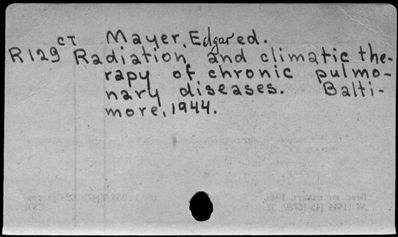 CT Mayer, Edgar ed.
R129 Radiation and climatic the-
rapy of chronic pulmo-
nary diseases. Balti-
more, 1944.